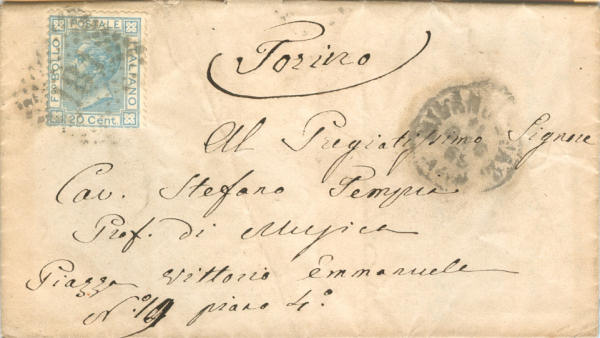 FRANCOBOLLO POSTALE ITALIANO
20 Cent.
Torino
Al Pregiatissimo Signore
Cav. Stefano Tempia
Prof. di Musica
Piazza Vittorio Emmanuele
N.° 19 piano 4.°